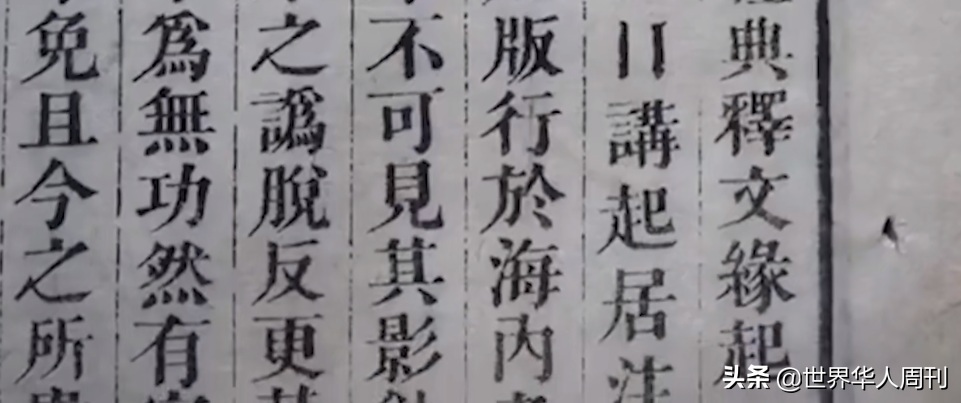 典釋文緣起
日講起居注
版行於海內
不可見其影
之譌脫反更
爲無功然有
免且今之所
头条 @世界华人周刊